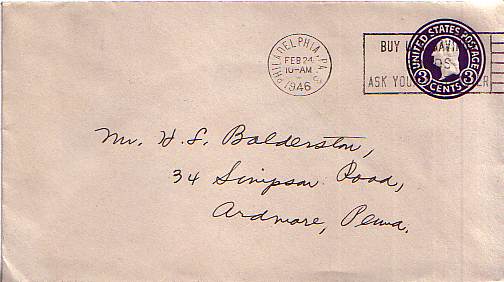 PHILADELPHIA, PA. 3
FEB 24
10-AM
1946
BUY
ASK YOUR
UNITED STATES POSTAGE
3 CENTS 3
Mr. H. S. Balderston,
34 Simpson Road,
Ardmore, Penna.